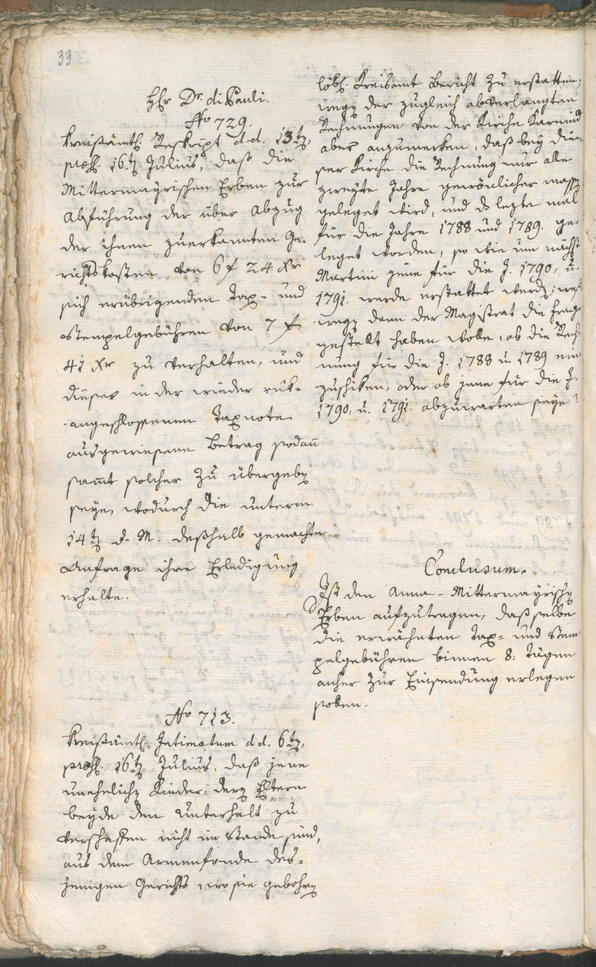 33.
Hr Dr. di Pauli.
No 729.
Kreisämtl. Reskript d. d. 13tn
praes. 16tn Julius, daß die
Mittermayrischen Erben zur
Abführung der über Abzug
der ihnen zuerkannten Ge-
richtskosten von 6 f 24 Xr
sich erübrigenden Tax- und
Stempelgebühren von 7 f
41 Xr zu verhalten, und
dieser in der wieder rük-
angeschlossenen Taxnote
ausgewiesene Betrag sodann
samt solcher zu übergeben
seye, wodurch die unterm
14tn d. M. deßhalb gemachte
Anfrage ihre Erledigung
erhalte.
No 713.
Kreisämtl. Intimatum d. d. 6tn,
praes. 16tn Julius, daß jene
unehelichen Kinder, deren Eltern
beyde den Unterhalt zu
verschaffen nicht im Stande sind,
aus dem Armenfonde des-
jenigen Gerichts, wo sie gebohren
löbl. Kreisamt Bericht zu erstatten;
wegen der zugleich abverlangten
Rechnungen von der Kirche
aber anzumerken, daß bey die-
ser Kirche die Rechnung nur alle
zweyte Jahre gewöhnlicher massen
geleget wird, und das lezte mal
für die Jahre 1788 und 1789. ge-
leget worden, so wie um nächst
Martini jene für die J. 1790, u.
1791. werde erstattet werden; wes-
wegen dann der Magistrat die Frage
gestellt haben wolle, ob die Rech-
nung für die J. 1788 u. 1789 ein-
zuschiken, oder ob jene für die J.
1790, u. 1791. abzuwarten seye?
Conclusum.
Ist den Anna-Mittermayrischen
Erben aufzutragen, daß selbe
die erwähnten Tax- und Stem-
pelgebühren binnen 8: Tägen
anher zur Einsendung erlegen
sollen.